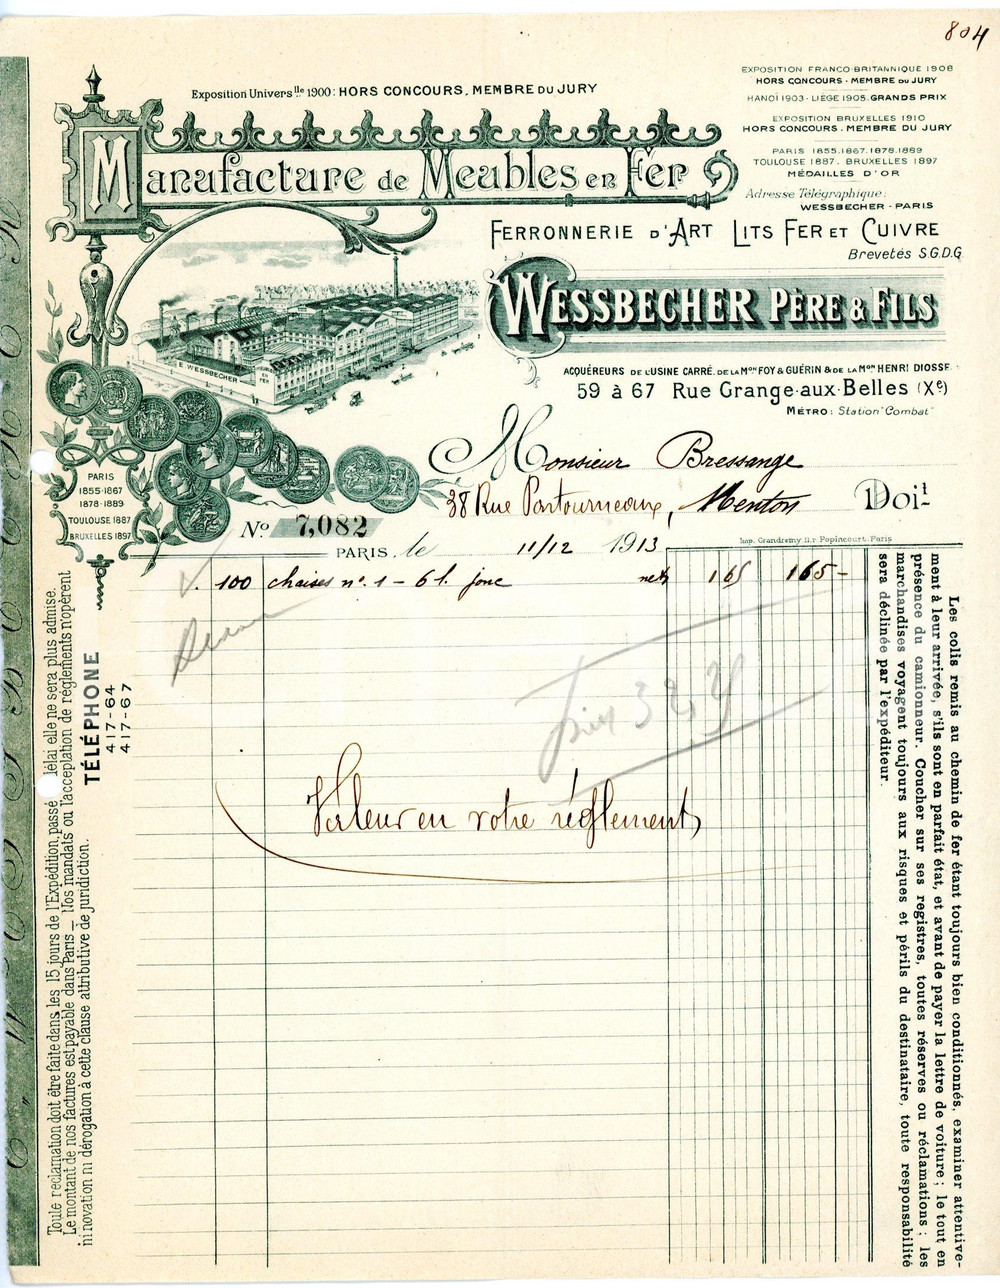 804
Exposition Univers.lle 1900: HORS CONCOURS, MEMBRE DU JURY
EXPOSITION FRANCO-BRITANNIQUE 1908
HORS CONCOURS - MEMBRE DU JURY
HANOÏ 1903 - LIÈGE 1905. GRANDS PRIX
EXPOSITION BRUXELLES 1910
HORS CONCOURS. MEMBRE DU JURY
PARIS 1855.1867.1878.1889
TOULOUSE 1887. BRUXELLES 1897
MÉDAILLES D'OR
Adresse Télégraphique:
WESSBECHER - PARIS
Manufacture de Meubles en Fer
FERRONNERIE D'ART LITS FER ET CUIVRE
Brevetés S.G.D.G.
WESSBECHER PÈRE & FILS
E. WESSBECHER
ACQUÉREURS DE L'USINE CARRÉ, DE LA MON FOY & GUÉRIN & DE LA MON HENRI DIOSSE
59 à 67 Rue Grange-aux-Belles (Xe)
MÉTRO: Station "Combat"
Monsieur Bressange
38 Rue Partourneaux, Menton Doit
PARIS
1855-1867
1878-1889
TOULOUSE 1887
BRUXELLES 1897
No. 7,082
PARIS, le 11/12 1913
Imp. Grandremy 11.r Popincourt. Paris
100 chaises no. 1 - 6 l. jonc net 165 165 -
323
Valeur en votre règlement
TÉLÉPHONE
417-64
417-67
Toute réclamation doit être faite dans les 15 jours de l'Expédition, passé délai elle ne sera plus admise.
Le montant de nos factures est payable dans Paris — Nos mandats ou l'acceptation de réglements n'opèrent
ni novation ni dérogation à cette clause attributive de juridiction.
Les colis remis au chemin de fer étant toujours bien conditionnés, examiner attentive-
ment à leur arrivée, s'ils sont en parfait état, et avant de payer la lettre de voiture ; le tout en
présence du camionneur. Coucher sur ses registres, toutes réserves ou réclamations ; les
marchandises voyagent toujours aux risques et périls du destinataire, toute responsabilité
sera déclinée par l'expéditeur.